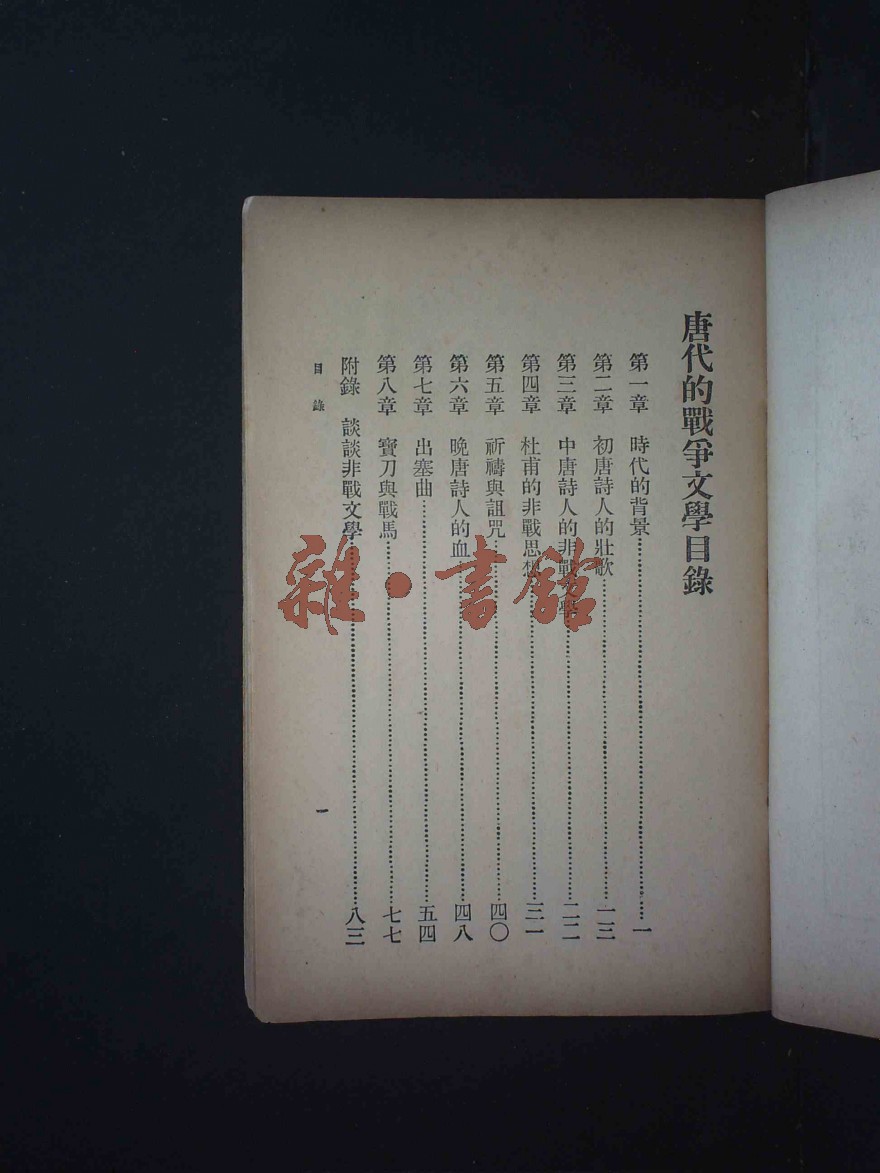 唐代的戰爭文學目錄
第一章　時代的背景……一
第二章　初唐詩人的壯歌……一三
第三章　中唐詩人的非戰文學……二二
第四章　杜甫的非戰思想……三一
第五章　祈禱與詛咒……四〇
第六章　晚唐詩人的血……四八
第七章　出塞曲……五四
第八章　寶刀與戰馬……七七
附錄　談談非戰文學……八三
目錄
一
雜·書館